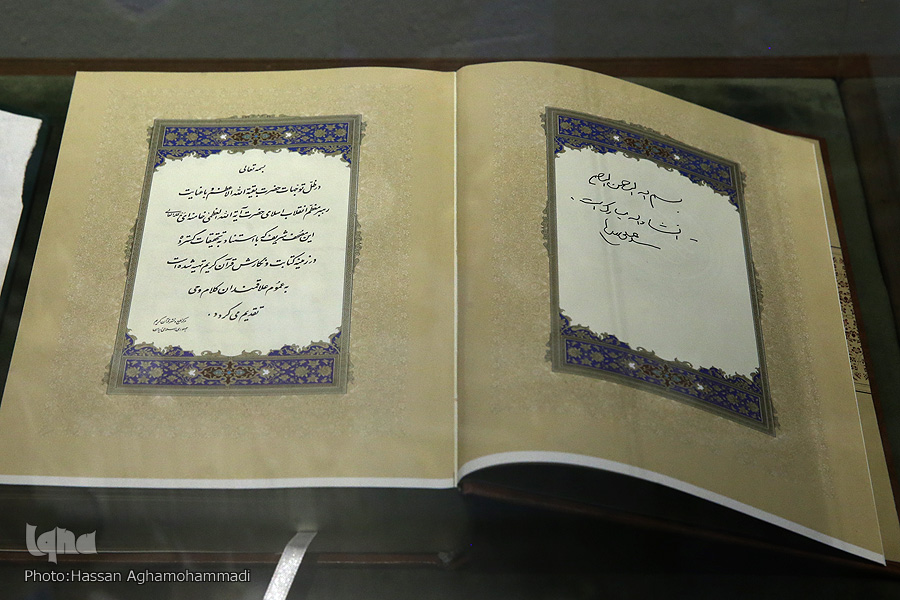 بسم الله الرحمن الرحیم
انشاءالله مبارک است.
بسمه تعالی
در ظل توجهات حضرت بقیة الله الاعظم و با عنایت
رهبر معظم انقلاب اسلامی حضرت آیة الله العظمی خامنه‌ای
این مصحف شریف که با استناد به تحقیقات گسترده
در زمینه کتابت و نگارش قرآن کریم تهیه شده است
به عموم علاقمندان کلام وحی
تقدیم می گردد.
جمهوری اسلامی ایران
iqna
Photo:Hassan Aghamohammadi